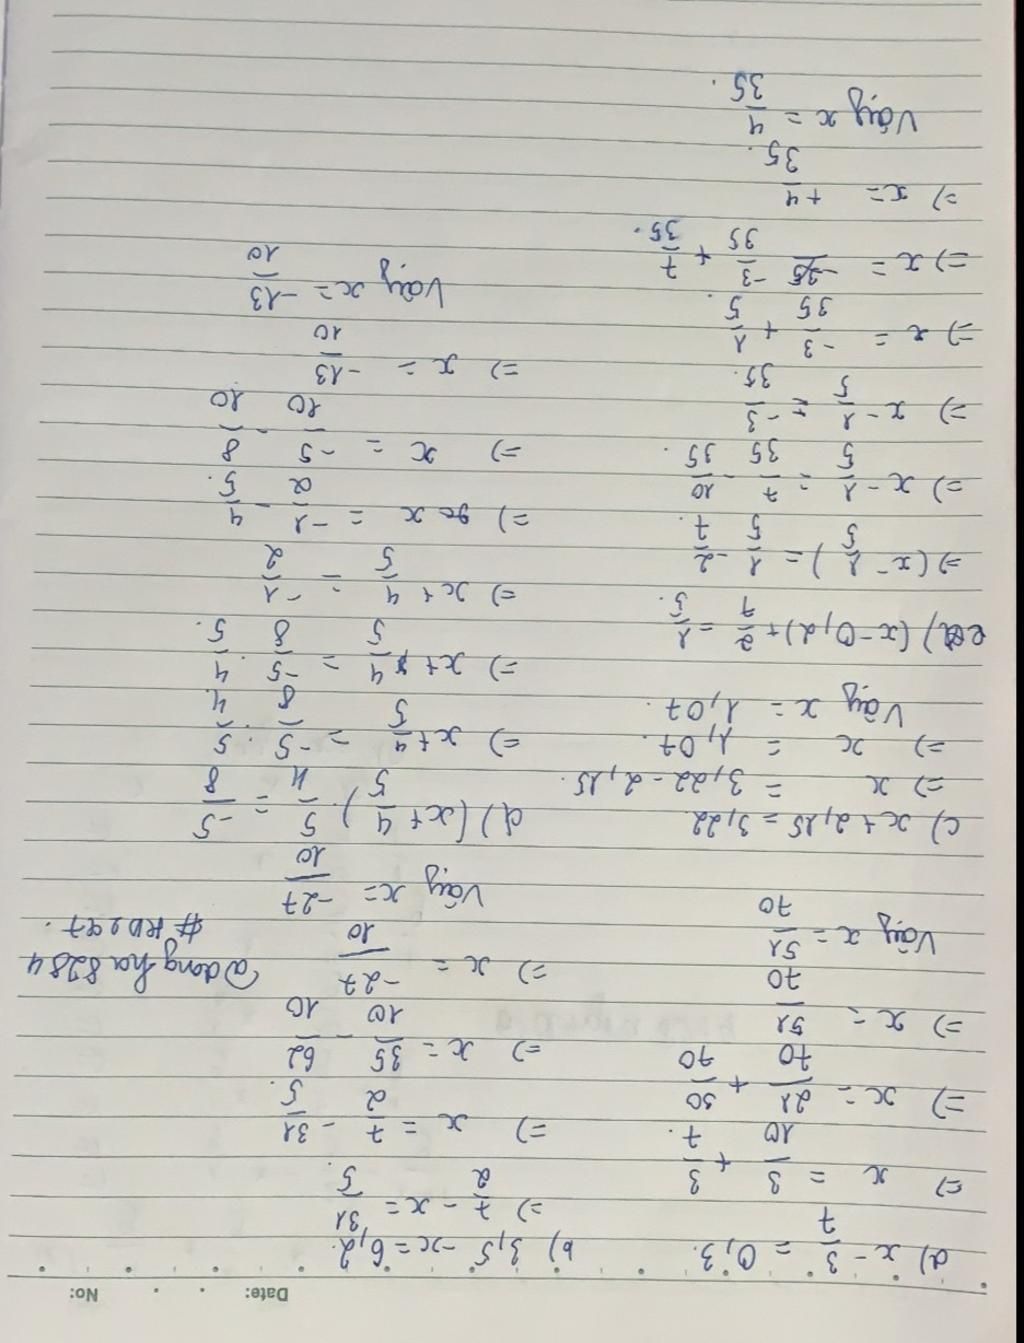 Date: No:
a) x - 3/7 = 0,3.
=> x = 3/10 + 3/7.
=> x = 21/70 + 30/70
=> x = 51/70
Vậy x = 51/70
b) 3,5 - x = 6,2.
=> 7/2 - x = 31/5.
=> x = 7/2 - 31/5.
=> x = 35/10 - 62/10
=> x = -27/10
Vậy x = -27/10
@dongha8284
c) x + 2,15 = 3,22
=> x = 3,22 - 2,15.
=> x = 1,07.
Vậy x = 1,07.
d) (x + 4/5) . 5/4 = -5/8
=> x + 4/5 = -5/8 : 5/4
=> x + 4/5 = -5/8 . 4/5.
=> x + 4/5 = -1/2
=> x = -1/2 - 4/5.
=> x = -5/10 - 8/10
=> x = -13/10
Vậy x = -13/10
e) (x - 0,2) + 2/7 = 1/5.
=> (x - 1/5) = 1/5 - 2/7.
=> x - 1/5 = 7/35 - 10/35.
=> x - 1/5 = -3/35.
=> x = -3/35 + 1/5.
=> x = -3/35 + 7/35.
=> x = +4/35.
Vậy x = 4/35.